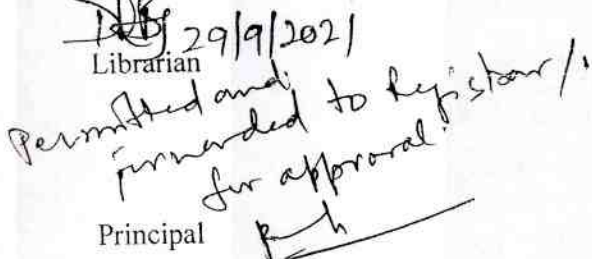 29/9/2021
Librarian
Permitted and
forwarded to Registrar/.
for approval.
Principal